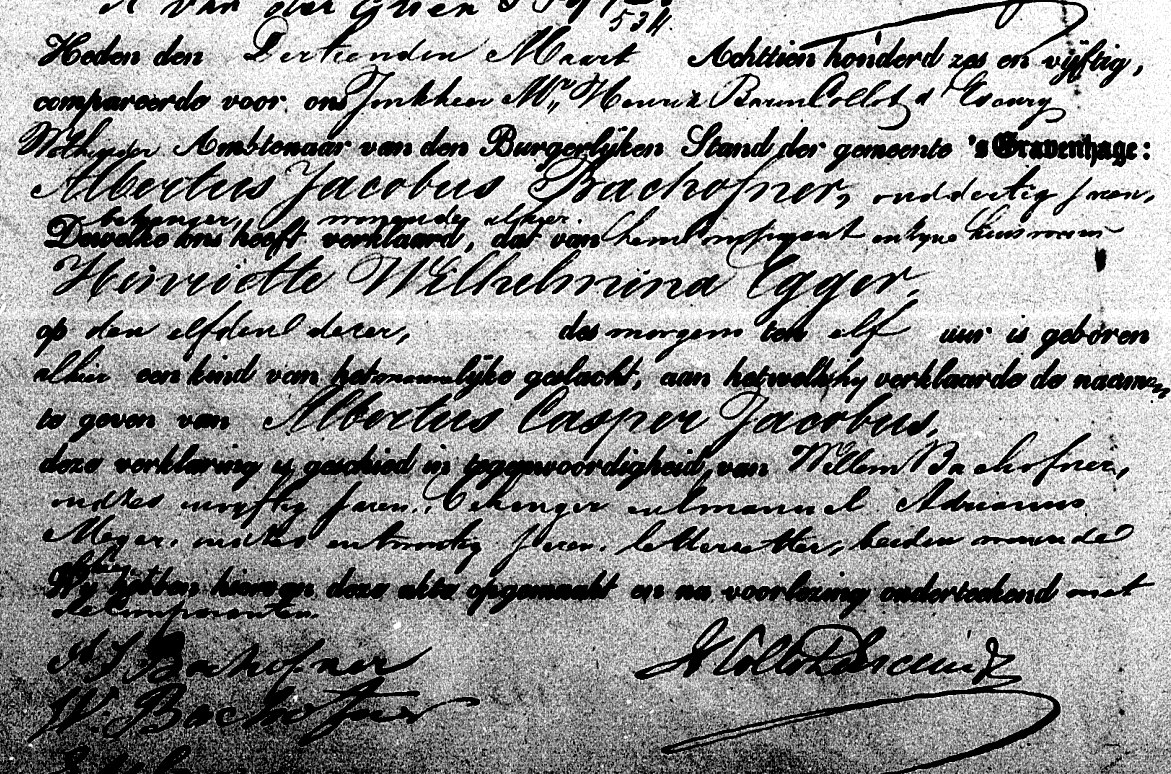 A van der
534.
Heden den Dertienden Maart Achttien honderd zes en vijftig,
compareerde voor ons Jonkheer Mr. Henrik Baron Collot d'Escury
Wethouder Ambtenaar van den Burgerlijken Stand der gemeente 's Gravenhage:
Albertus Jacobus Bachofner, oud dertig jaren,
behanger, wonende alhier.
Dewelke ons heeft verklaard, dat van hem comparant en zijne huisvrouw
Henriette Wilhelmina Egger,
op den elfden dezer, des morgens ten elf uur is geboren
alhier een kind van het mannelijke geslacht, aan hetwelk hy verklaarde de naamen
te geven van Albertus Casper Jacobus,
deze verklaring is geschied in tegenwoordigheid van Willem Bachofner,
oud zes en vyftig jaren, behanger en Emanuel Adrianus
Meyer, oud zes en twintig jaren, letterzetter, beiden wonende
alhier.
Wij hebben hiervan deze akte opgemaakt en na voorlezing onderteekend met
de Comparanten.
A J Bachofner
H Collot d'Escury
W. Bachofner